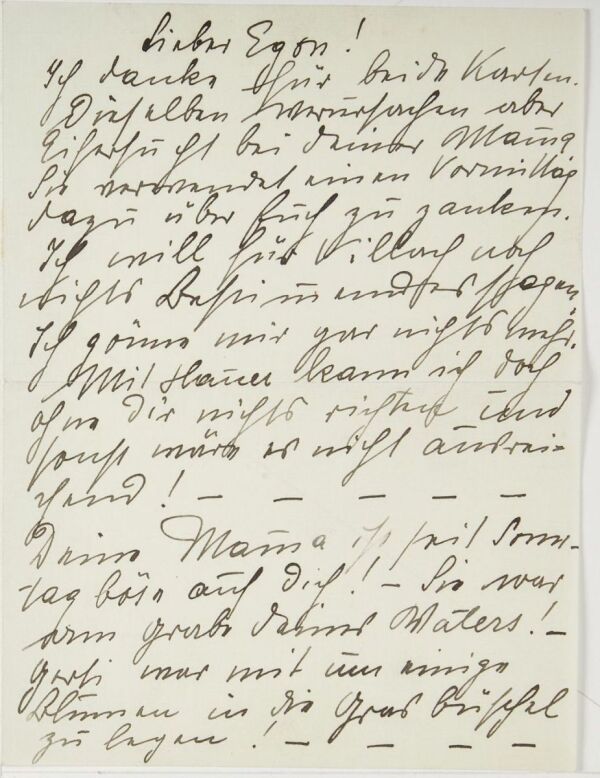 Lieber Egon!
Ich danke für beide Karten.
Dieselben verursachen aber
Eifersucht bei deiner Mama
Sie verwendet einen Vormittag
dazu über Euch zu zanken.
Ich will für Villach noch
nichts Bestimmendes sagen,
Ich gönne mir gar nichts mehr.
Mit Hauer kann ich doch
ohne dir nichts richten und
sonst wäre es nicht ausrei-
chend! — — — — —
Deine Mama ist seit Sonn-
tag böse auf dich! — Sie war
am Grabe deines Vaters! —
Gerti war mit um einige
Blumen in die Grasbüschel
zu legen! — — — —